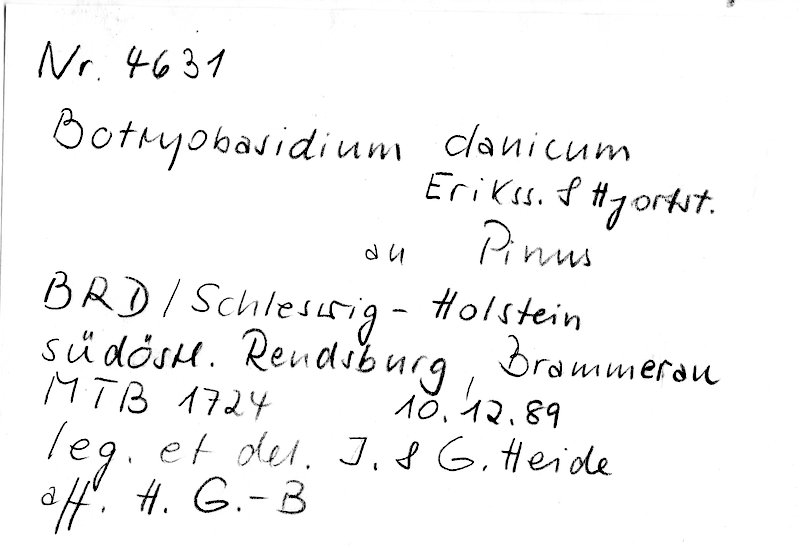 Nr. 4631
Botryobasidium danicum
Erikss. & Hjortst.
an Pinus
BRD / Schleswig-Holstein
südöstl. Rendsburg, Brammerau
MTB 1724 10.12.89
leg. et det. J. & G. Heide
aff. H. G.-B